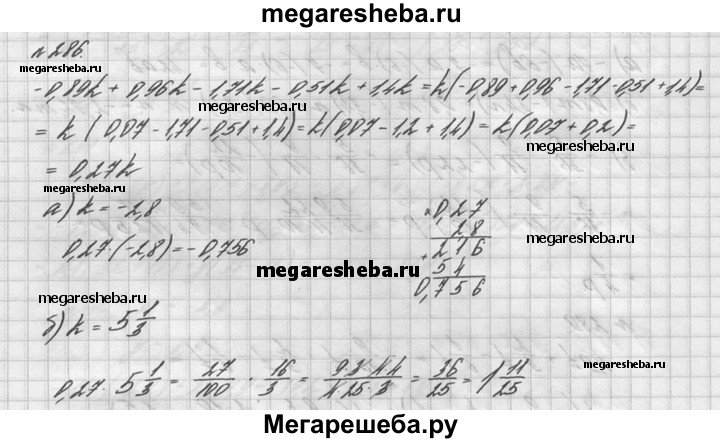 megaresheba.ru
№ 286.
-0,89k + 0,96k - 1,71k - 0,51k + 1,4k = k(-0,89 + 0,96 - 1,71 - 0,51 + 1,4) =
megaresheba.ru
= k (0,07 - 1,71 - 0,51 + 1,4) = k(0,07 - 1,2 + 1,4) = k(0,07 + 0,2) =
megaresheba.ru
= 0,27k
megaresheba.ru
а) k = -2,8
0,27·(-2,8) = -0,756
× 0,27
2,8
+ 216
54
0,756
megaresheba.ru
megaresheba.ru
megaresheba.ru
б) k = 5 1/3
0,27 · 5 1/3 = 27/100 · 16/3 = 9·3·4·4/4·25·3 = 36/25 = 1 11/25
megaresheba.ru
Мегарешеба.ру